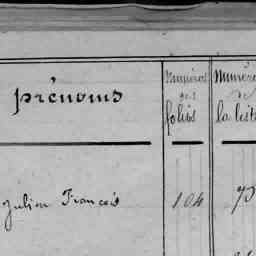 prénoms
Numéros
des
folios
Numéro
de
la liste
Julien François 104 73